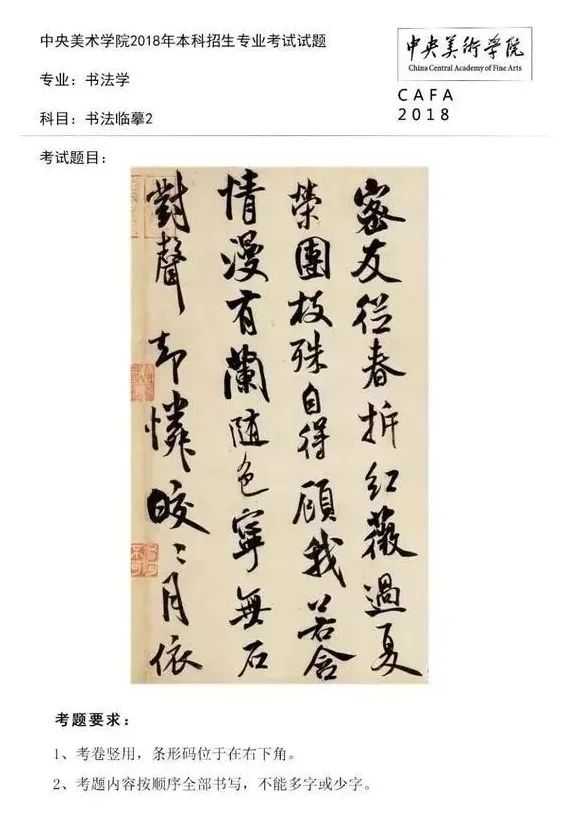 中央美术学院2018年本科招生专业考试试题
中央美術學院
China Central Academy of Fine Arts
专业：书法学
CAFA
2018
科目：书法临摹2
考试题目：
密友從春拆紅薇過夏
榮團枝殊自得顧我若含
情漫有蘭随色寧無石
對聲却憐皎〻月依
考题要求：
1、考卷竖用，条形码位于在右下角。
2、考题内容按顺序全部书写，不能多字或少字。